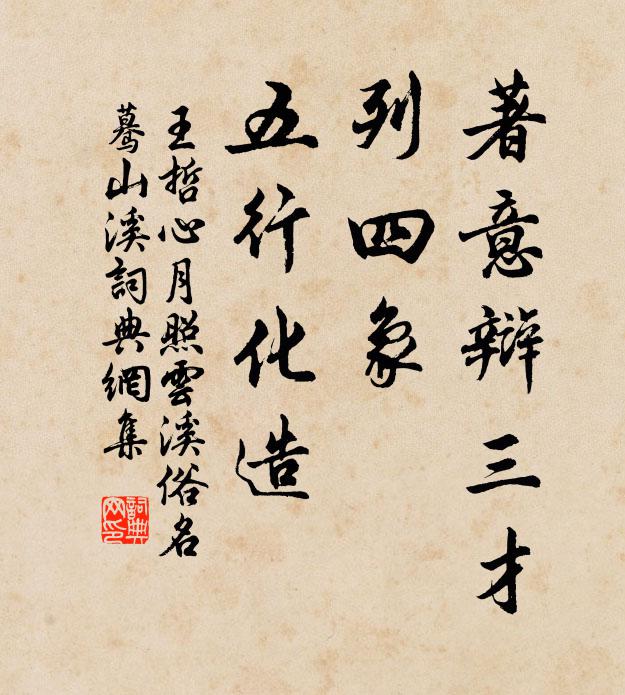 著意辯三才
列四象
五行化造
王哲心月照雲溪俗名
驀山溪詞典網集
詞典
网印